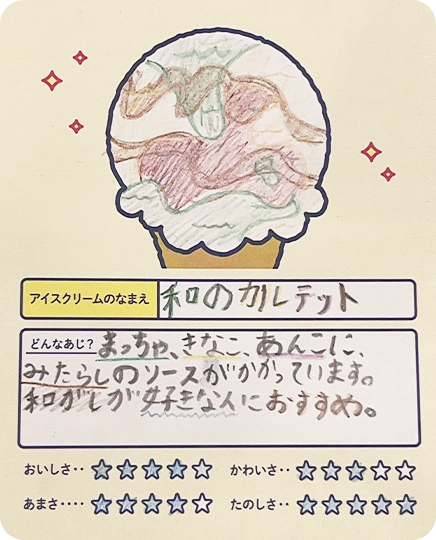 アイスクリームのなまえ 和のカルテット
どんなあじ? まっちゃ、きなこ、あんこに、
みたらしのソースがかかっています。
和がしが好きな人におすすめ。
おいしさ‥ ★★★★☆ かわいさ‥ ★★★☆☆
あまさ‥‥ ★★★★☆ たのしさ‥ ★★★★★